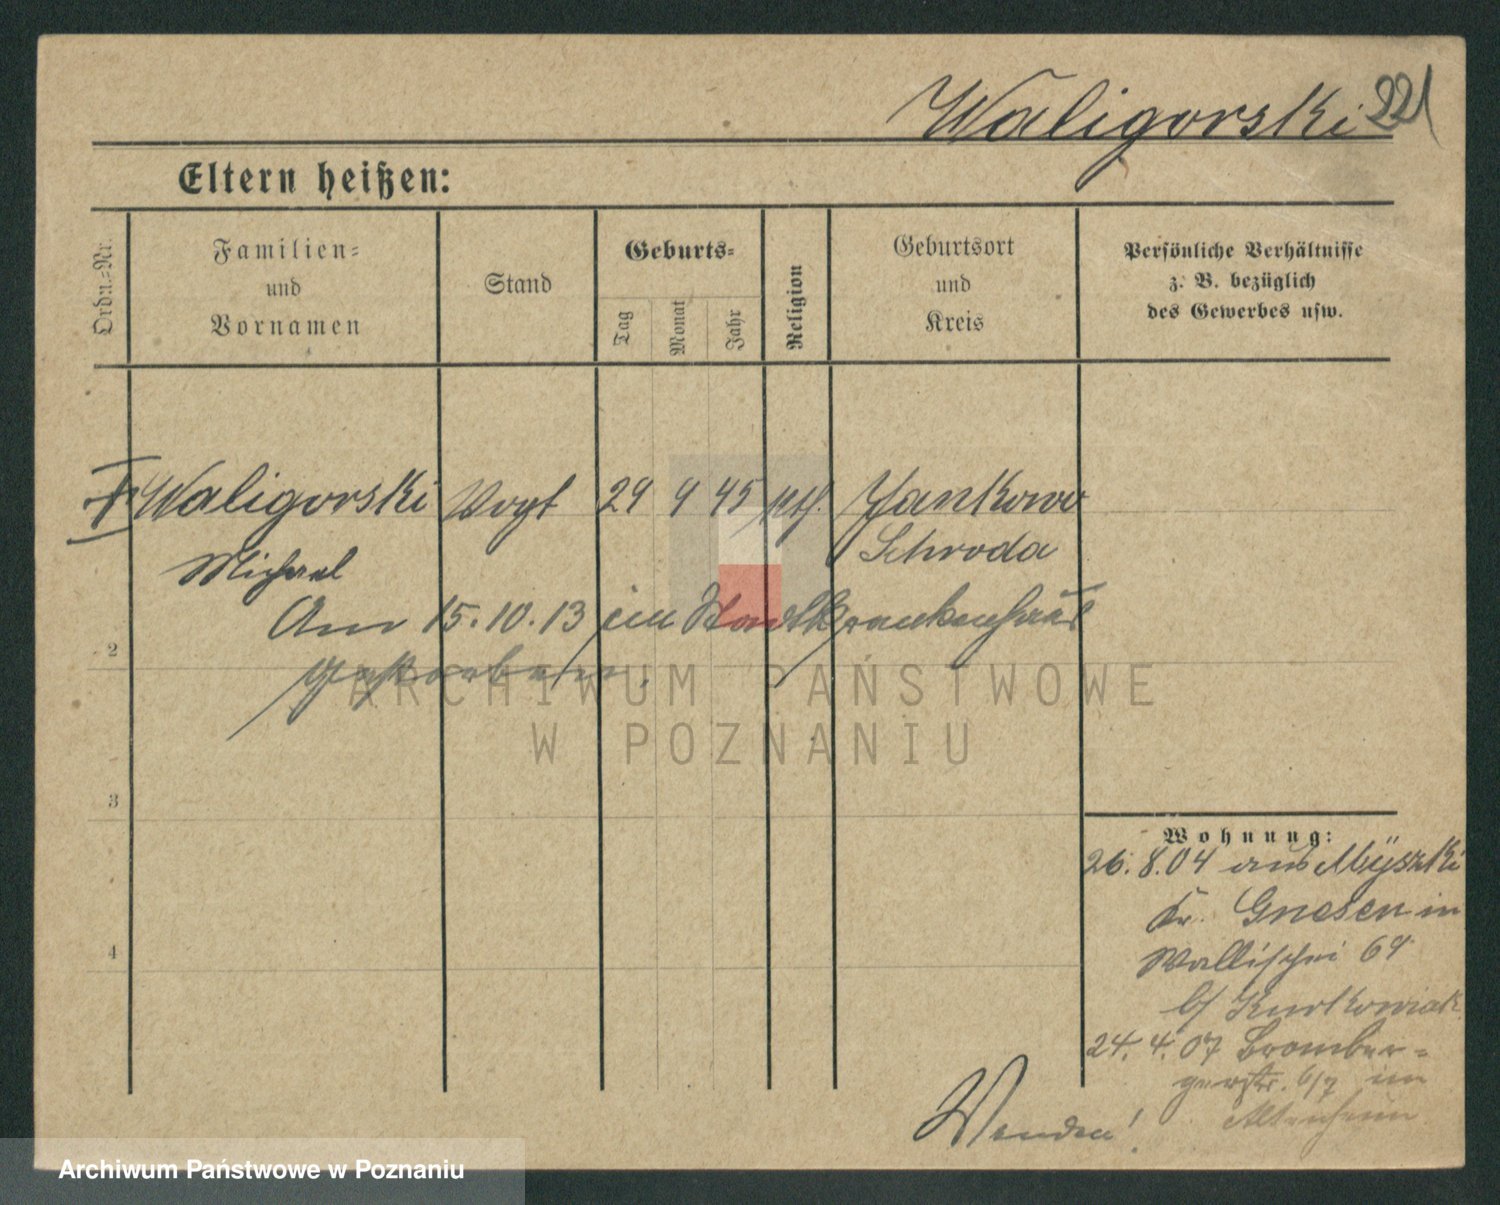 Waligorski 221
Eltern heißen:
Ordn.=Nr.
Familien=
und
Vornamen
Stand
Geburts=
Tag
Monat
Jahr
Religion
Geburtsort
und
Kreis
Persönliche Verhältnisse
z. B. bezüglich
des Gewerbes usw.
Waligorski Vogt 29 9 45 kth. Jankowo
Michael Schroda
Am 15.10.13 im Stadtkrankenhaus
gestorben.
2
3
4
Wohnung:
26.8.04 aus Myszki
Kr. Gnesen in
Wallischei 69
b/
24.4.07 Bromber-
gerstr. 6/7 im
Altenheim
Wenden!
ARCHIWUM PAŃSTWOWE
W POZNANIU
Archiwum Państwowe w Poznaniu